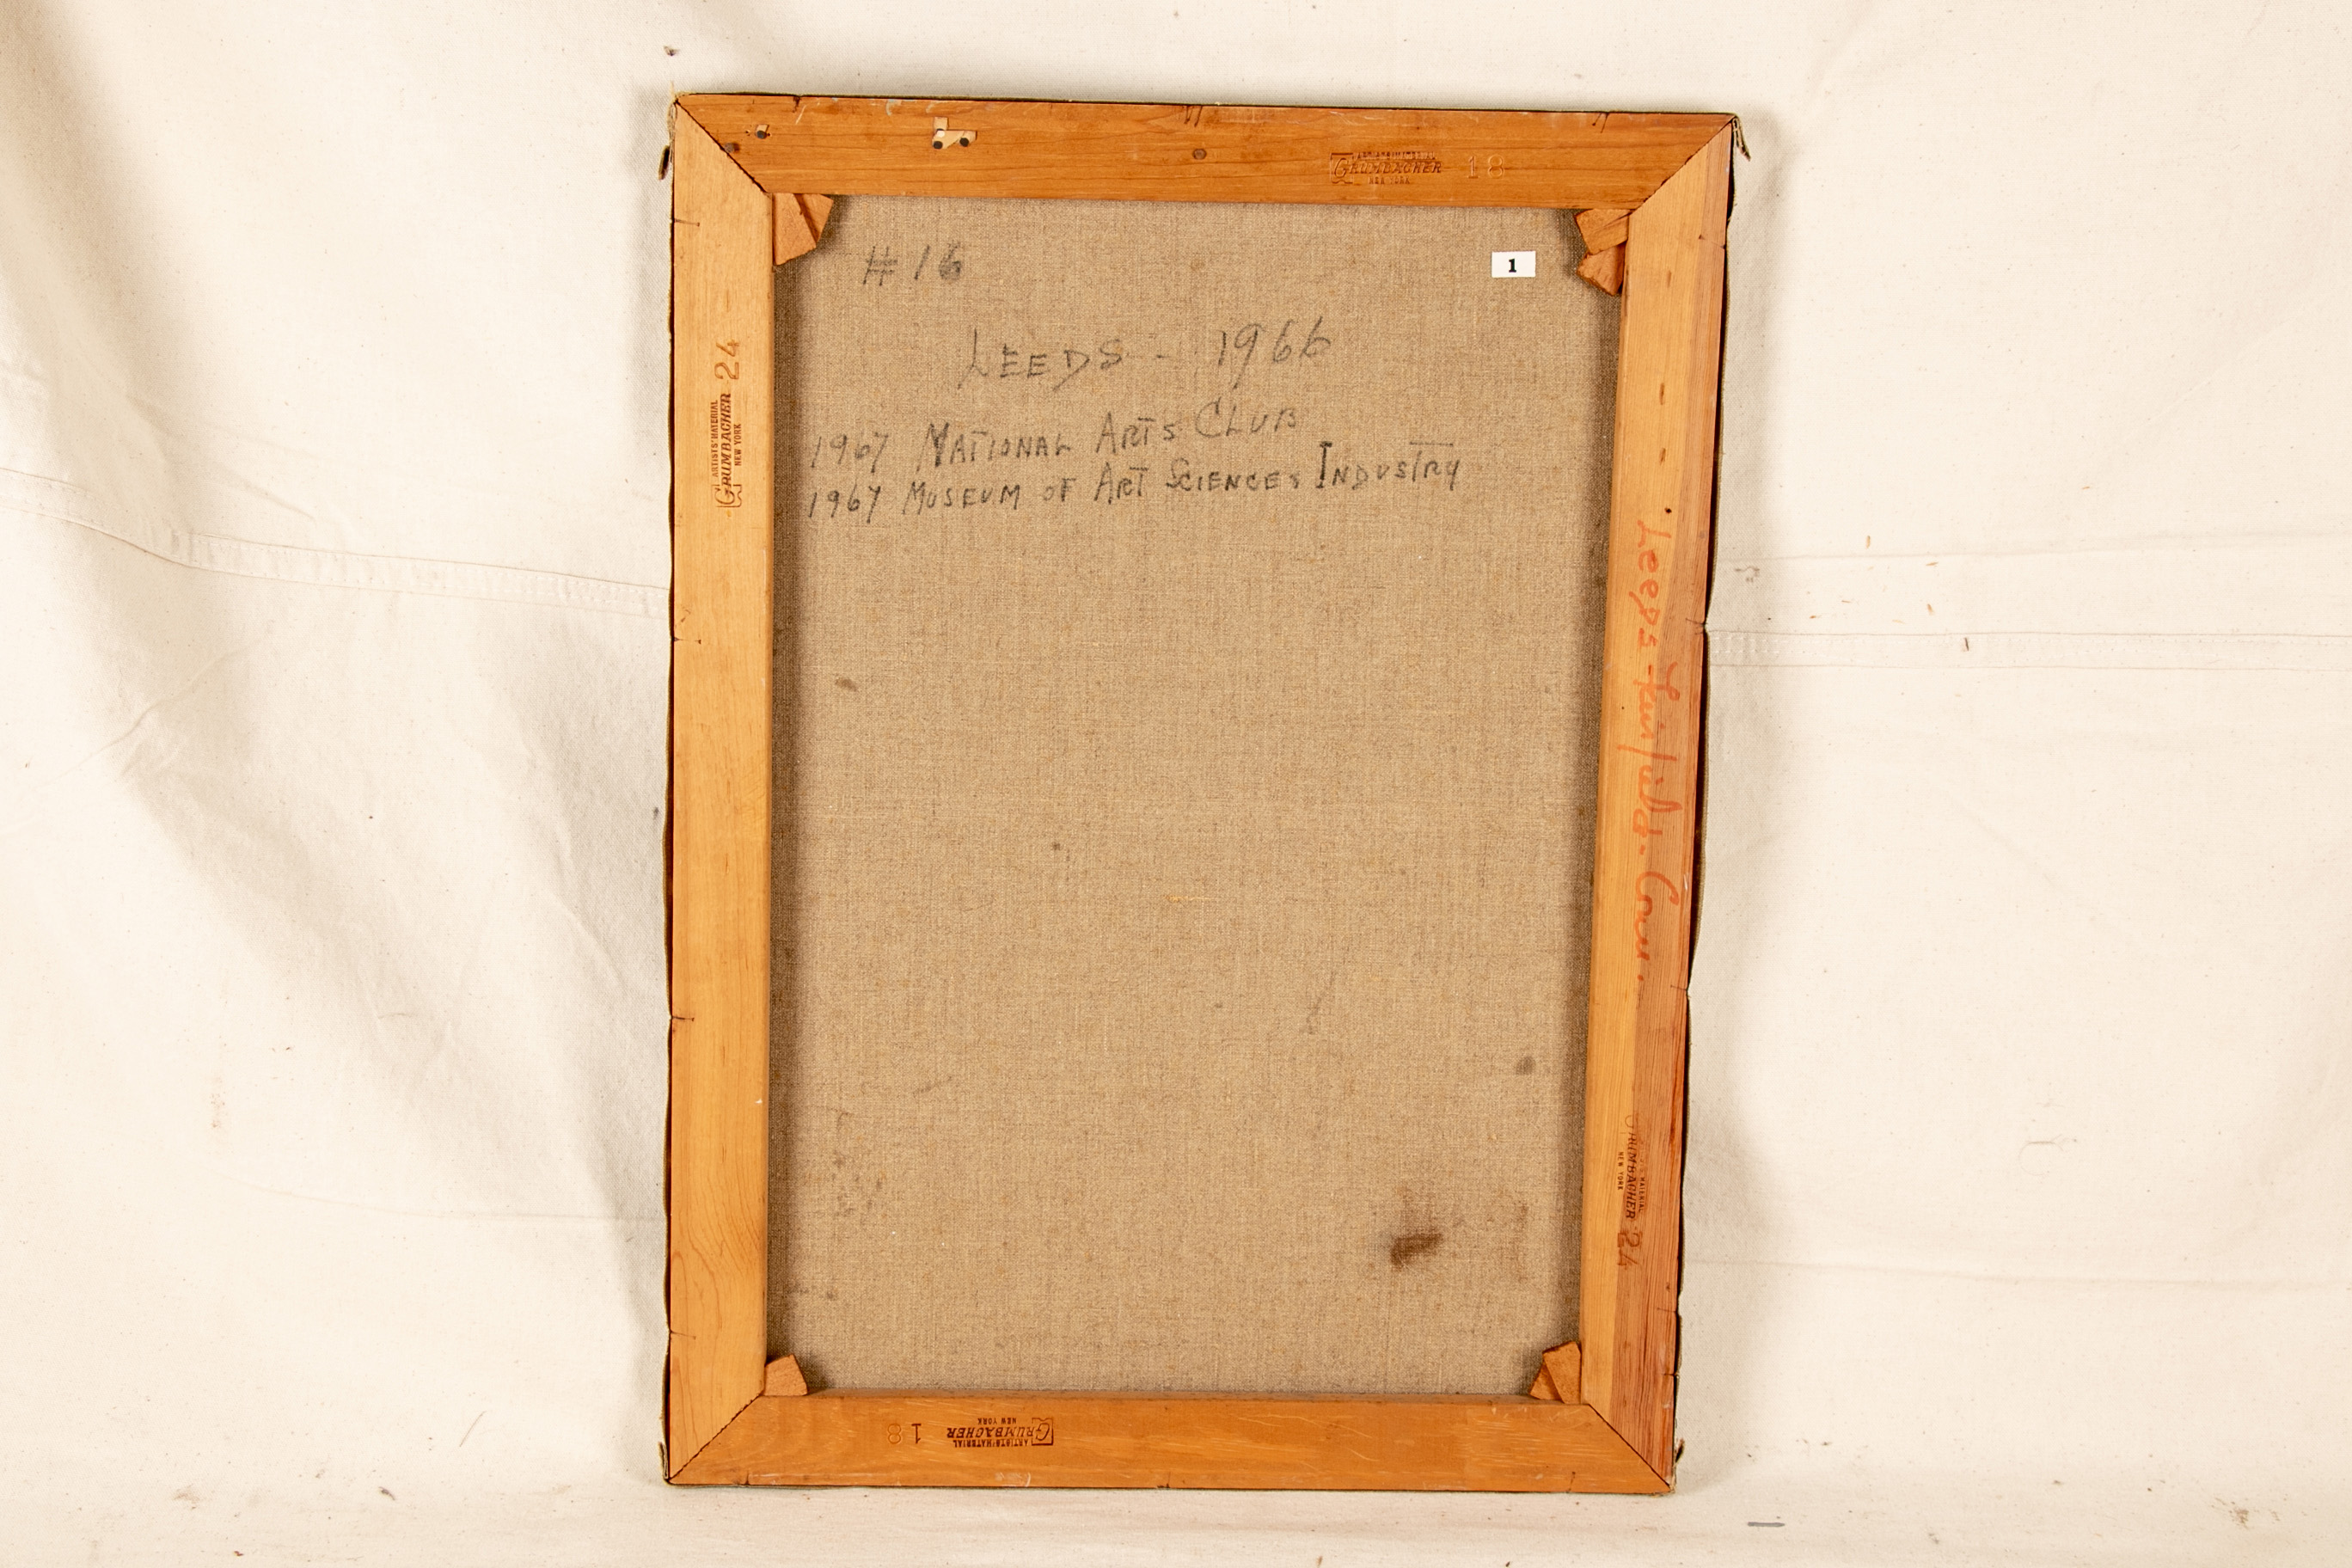 ARTISTS' MATERIAL
GRUMBACHER 18
NEW YORK
# 16
1
LEEDS - 1966
1967 NATIONAL ARTS CLUB
1967 MUSEUM OF ART SCIENCES INDUSTRY
ARTISTS' MATERIAL
GRUMBACHER 24
NEW YORK
Leeds - Fairfield. Conn.
MATERIAL
GRUMBACHER 24
NEW YORK
ARTISTS' MATERIAL
GRUMBACHER 18
NEW YORK